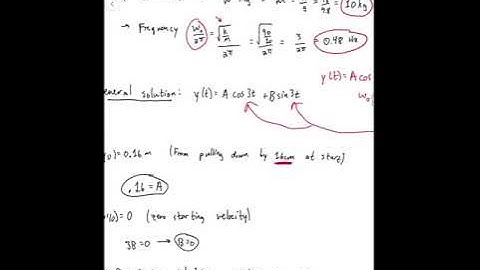 = 10 kg
→ Frequency w₀/2π = √(k/m)/2π = √(90/10)/2π = 3/2π = 0.48 Hz
y(t) = A cos
w₀
general solution: y(t) = A cos 3t + B sin 3t
(0) = 0.16 m (From pulling down by 16cm at start)
.16 = A
(0) = 0 (zero starting velocity)
3B = 0 → B = 0